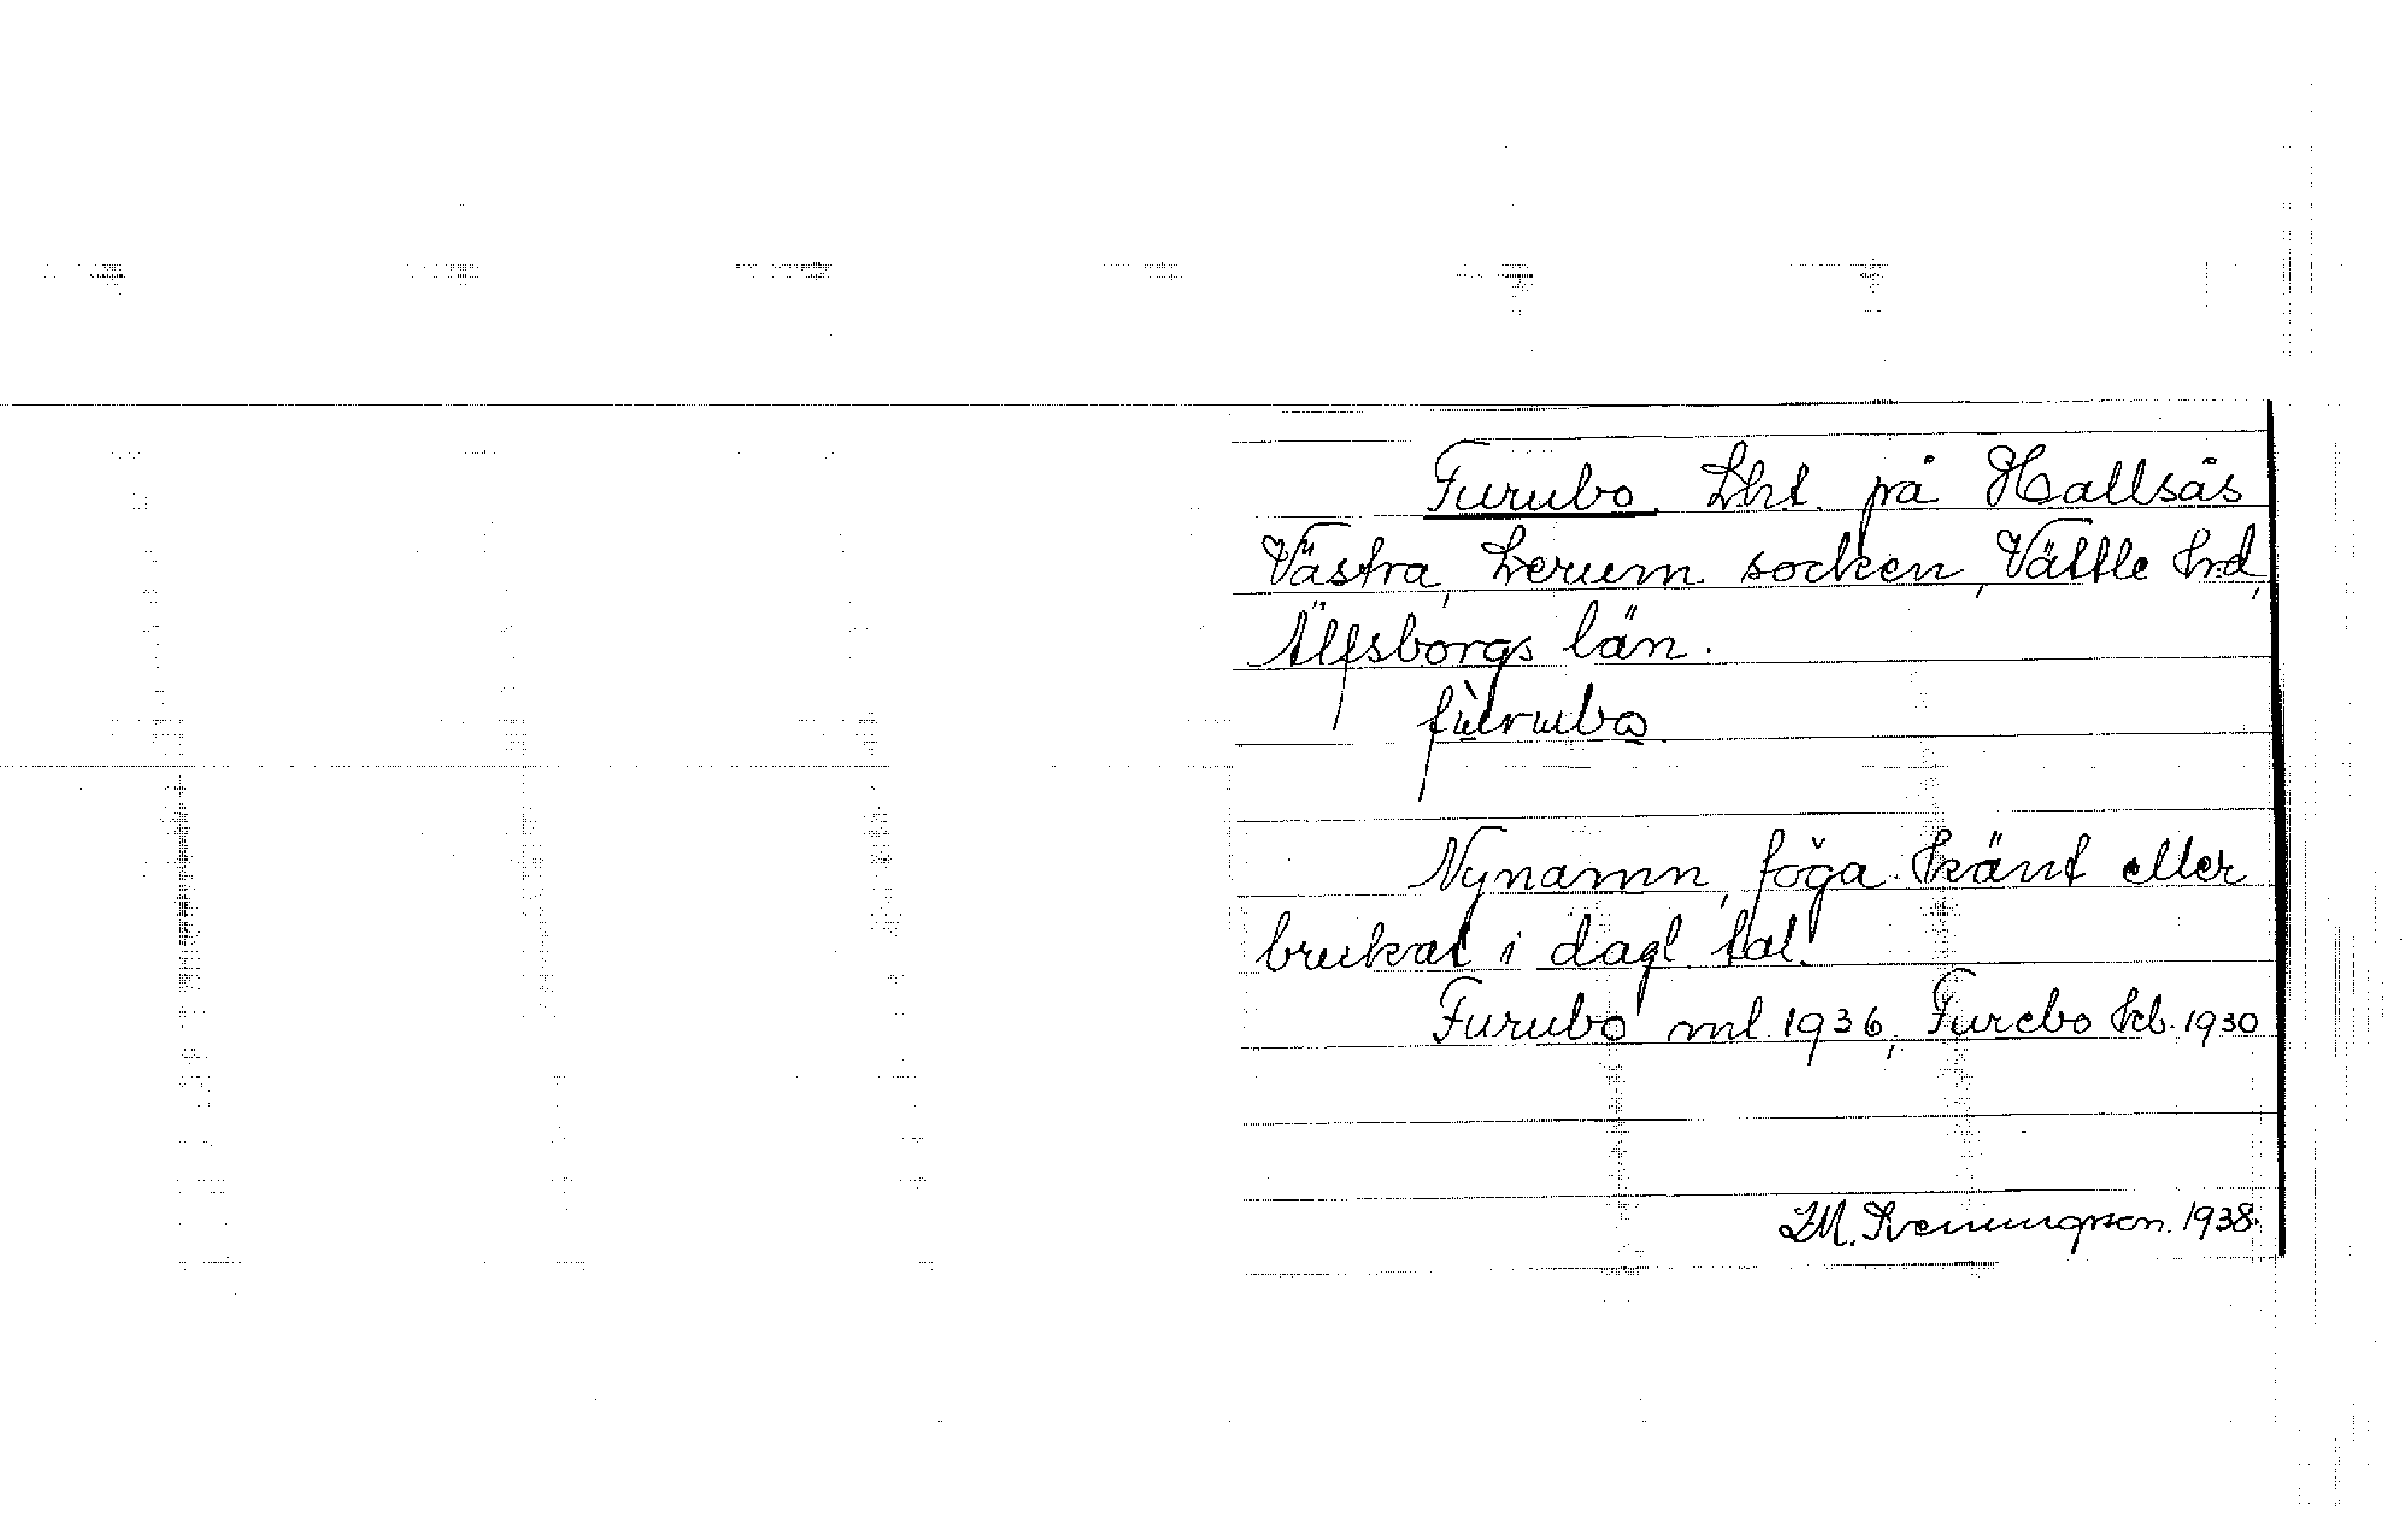 Furubo. Lht. på Hallsås
Västra, Lerum socken, Vättle hrd,
Älfsborgs län.
fùrubo.
Nynamn, föga känt eller
brukat i dagl. tal.
Furubo ml. 1936, Furebo kb. 1930
1938.